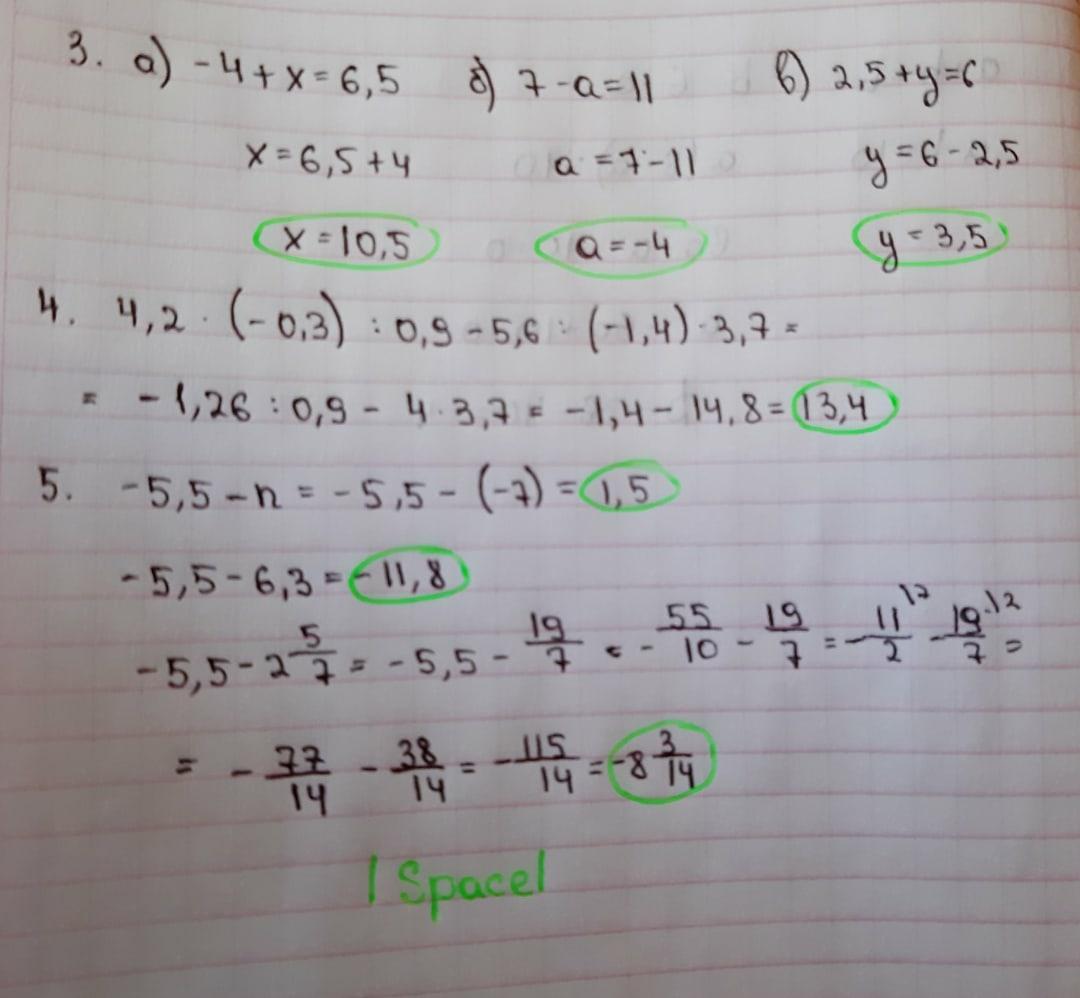 3. а) -4+x=6,5 б) 7-a=11 в) 2,5+y=6
x=6,5+4 a=7-11 y=6-2,5
x=10,5 a=-4 y=3,5
4. 4,2·(-0,3):0,9-5,6:(-1,4)·3,7=
= -1,26:0,9-4·3,7=-1,4-14,8=13,4
5. -5,5-n=-5,5-(-7)=1,5
-5,5-6,3=-11,8
-5,5-2 5/7=-5,5-19/7=-55/10-19/7=-11/2-19/7=
= -77/14-38/14=-115/14=-8 3/14
|Space|